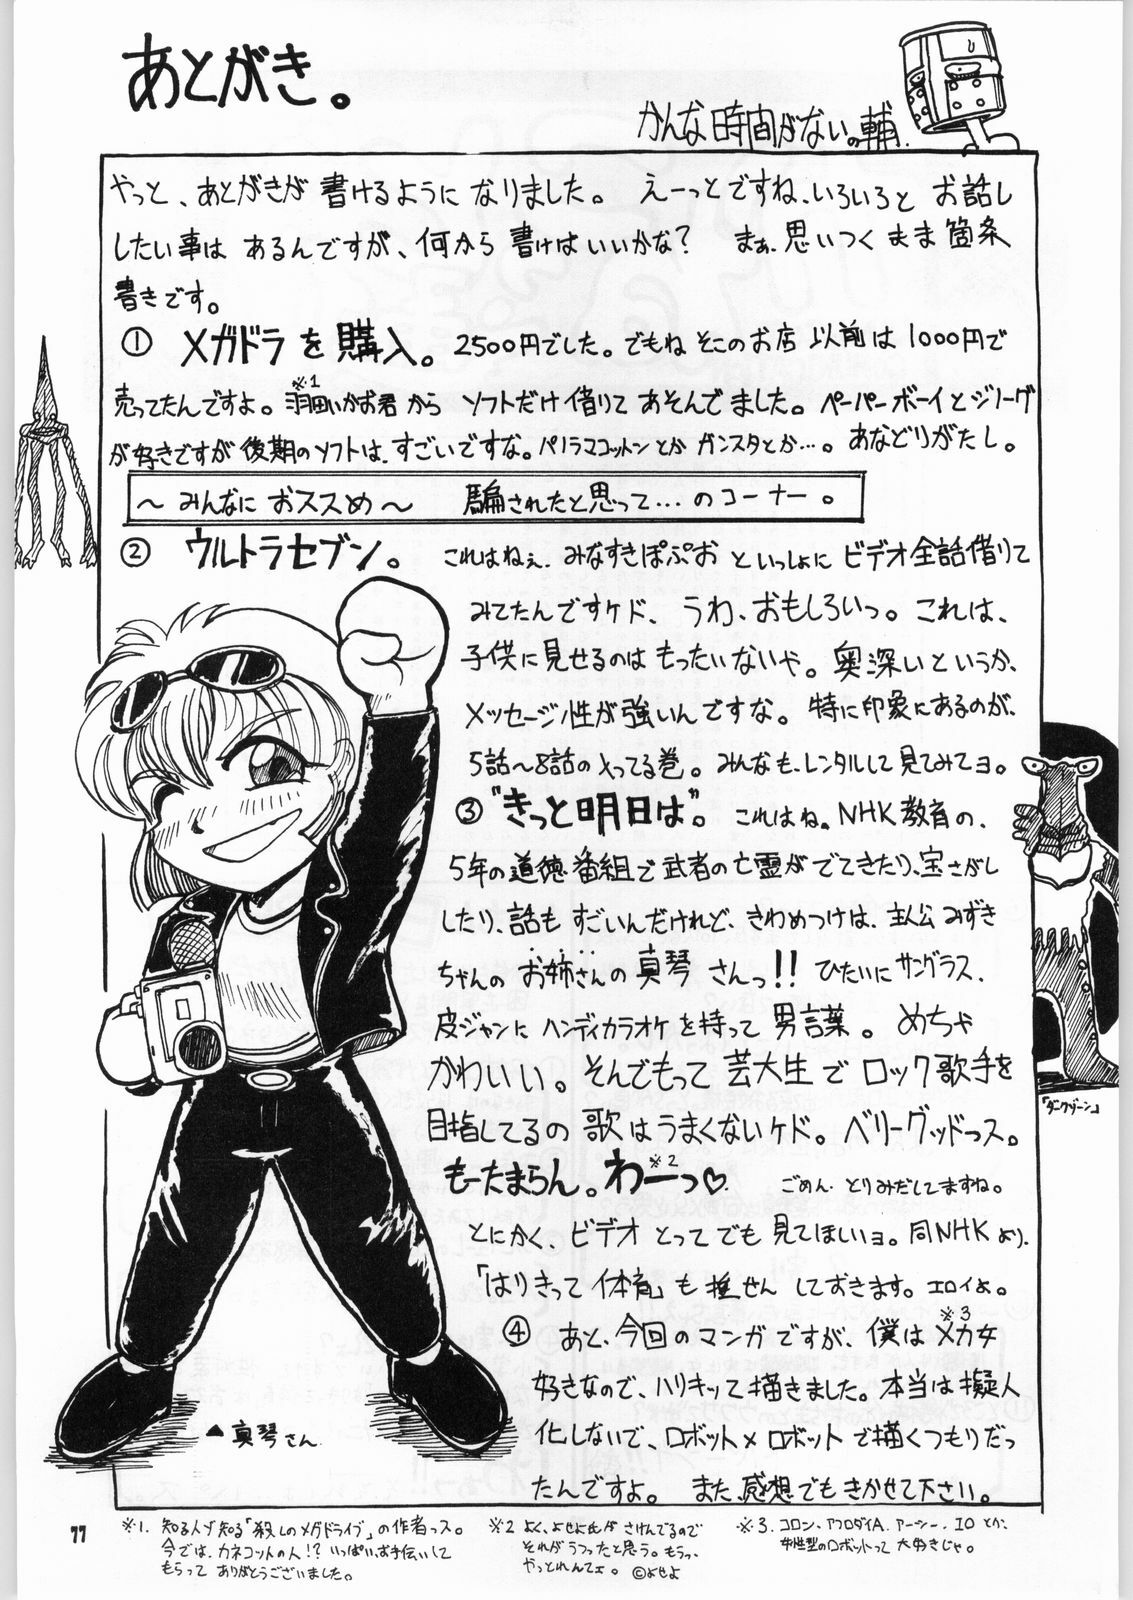 あとがき。
かんな時間がないの輔.
やっと、あとがきが書けるようになりました。 えーっとですね、いろいろとお話し
したい事はあるんですが、何から書けばいいかな? まぁ、思いつくまま箇条
書きです。
① メガドラを購入。2500円でした。でもねそこのお店以前は1000円で
売ってたんですよ。羽田いかお君からソフトだけ借りてあそんでました。ペーパーボーイとジリーグ
※1
が好きですが後期のソフトは、すごいですな。パノラマコットンとかガンスタとか…。あなどりがたし。
～みんなにおススめ～ 騙されたと思って…のコーナー。
② ウルトラセブン。 これはねぇ、みなすきぽぷおといっしょにビデオ全話借りて
みてたんですケド、うわ、おもしろいっ。これは、
子供に見せるのはもったいないや。奥深いというか、
メッセージ性が強いんですな。特に印象にあるのが、
5話～8話の入ってる巻。みんなも、レンタルして見てみてヨ。
③ "きっと明日は"。これはね。NHK教育の、
5年の道徳番組で武者の亡霊がでてきたり、宝さがし
したり、話もすごいんだけれど、きわめつけは、主人公みずき
ちゃんのお姉さんの真琴さんっ!! ひたいにサングラス、
皮ジャンにハンディカラオケを持って男言葉。めちゃ
かわいい。そんでもって芸大生でロック歌手を
目指してるの歌はうまくないケド。ベリーグッドっス。
もーたまらん。わーっ♡. ごめん、とりみだしてますね。
※2
とにかく、ビデオとってでも見てほしいョ。同NHKより、
「はりきって体育」も推せんしておきます。エロイよ。
④ あと、今回のマンガですが、僕はメカ女
※3
好きなので、ハリキッて描きました。本当は擬人
化しないで、ロボット×ロボットで描くつもりだっ
たんですよ。また、感想でもきかせて下さい。
▲真琴さん
「ダークゾーン」
※1. 知る人ゾ知る「殺しのメガドライブ」の作者っス。
今では、カネコットの人!?いっぱい、お手伝いして
もらってありがとうございました。
※2 よく、よせよ氏がさけんでるので
それがうつったと思う。もうっ、
やっとれんてェ。©よせよ
※3. コロン、アフロダイA、アーシー、IOとか、
女性型のロボットって大好きじゃ。
77